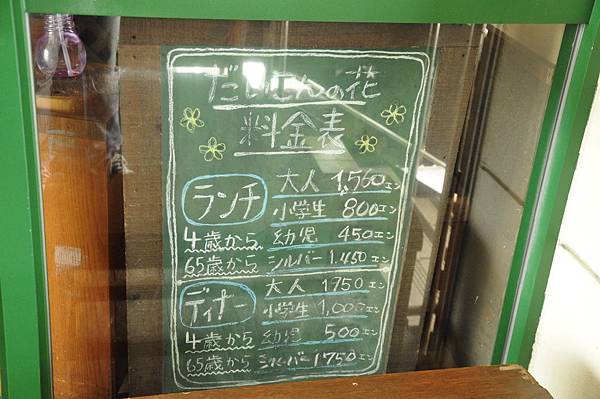 だいこんの花
料金表
ランチ 大人 1,560エン
小学生 800エン
4歳から 幼児 450エン
65歳から シルバー 1,450エン
ディナー 大人 1750エン
小学生 1,000エン
4歳から 幼児 500エン
65歳から シルバー 1750エン